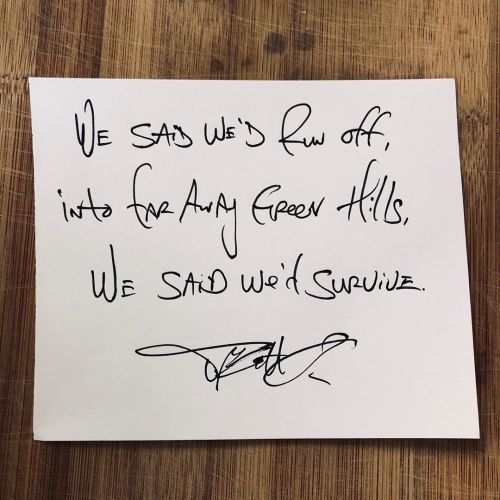 WE SAiD WE'D RUN off,
into FAR AWAY GREEN Hills,
WE SAiD We'd SURViVE.